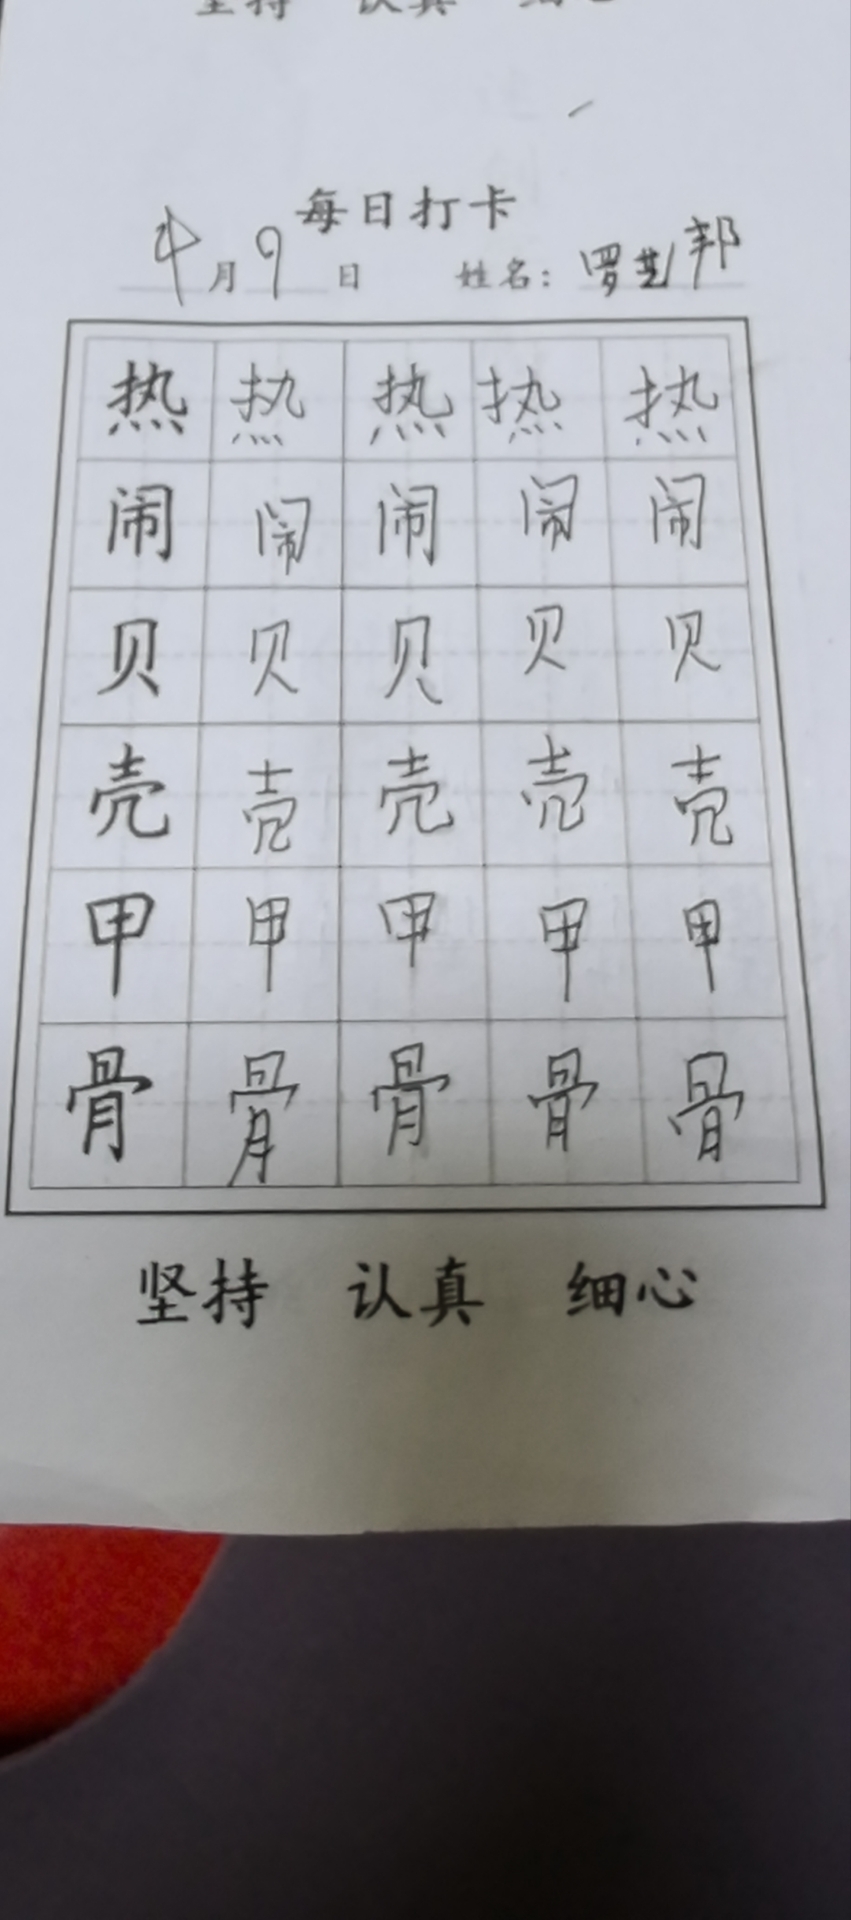 坚持 认真 细心
每日打卡
4月9日 姓名：罗芝邦
热 热 热 热 热
闹 闹 闹 闹 闹
贝 贝 贝 贝 贝
壳 壳 壳 壳 壳
甲 甲 甲 甲 甲
骨 骨 骨 骨 骨
坚持 认真 细心